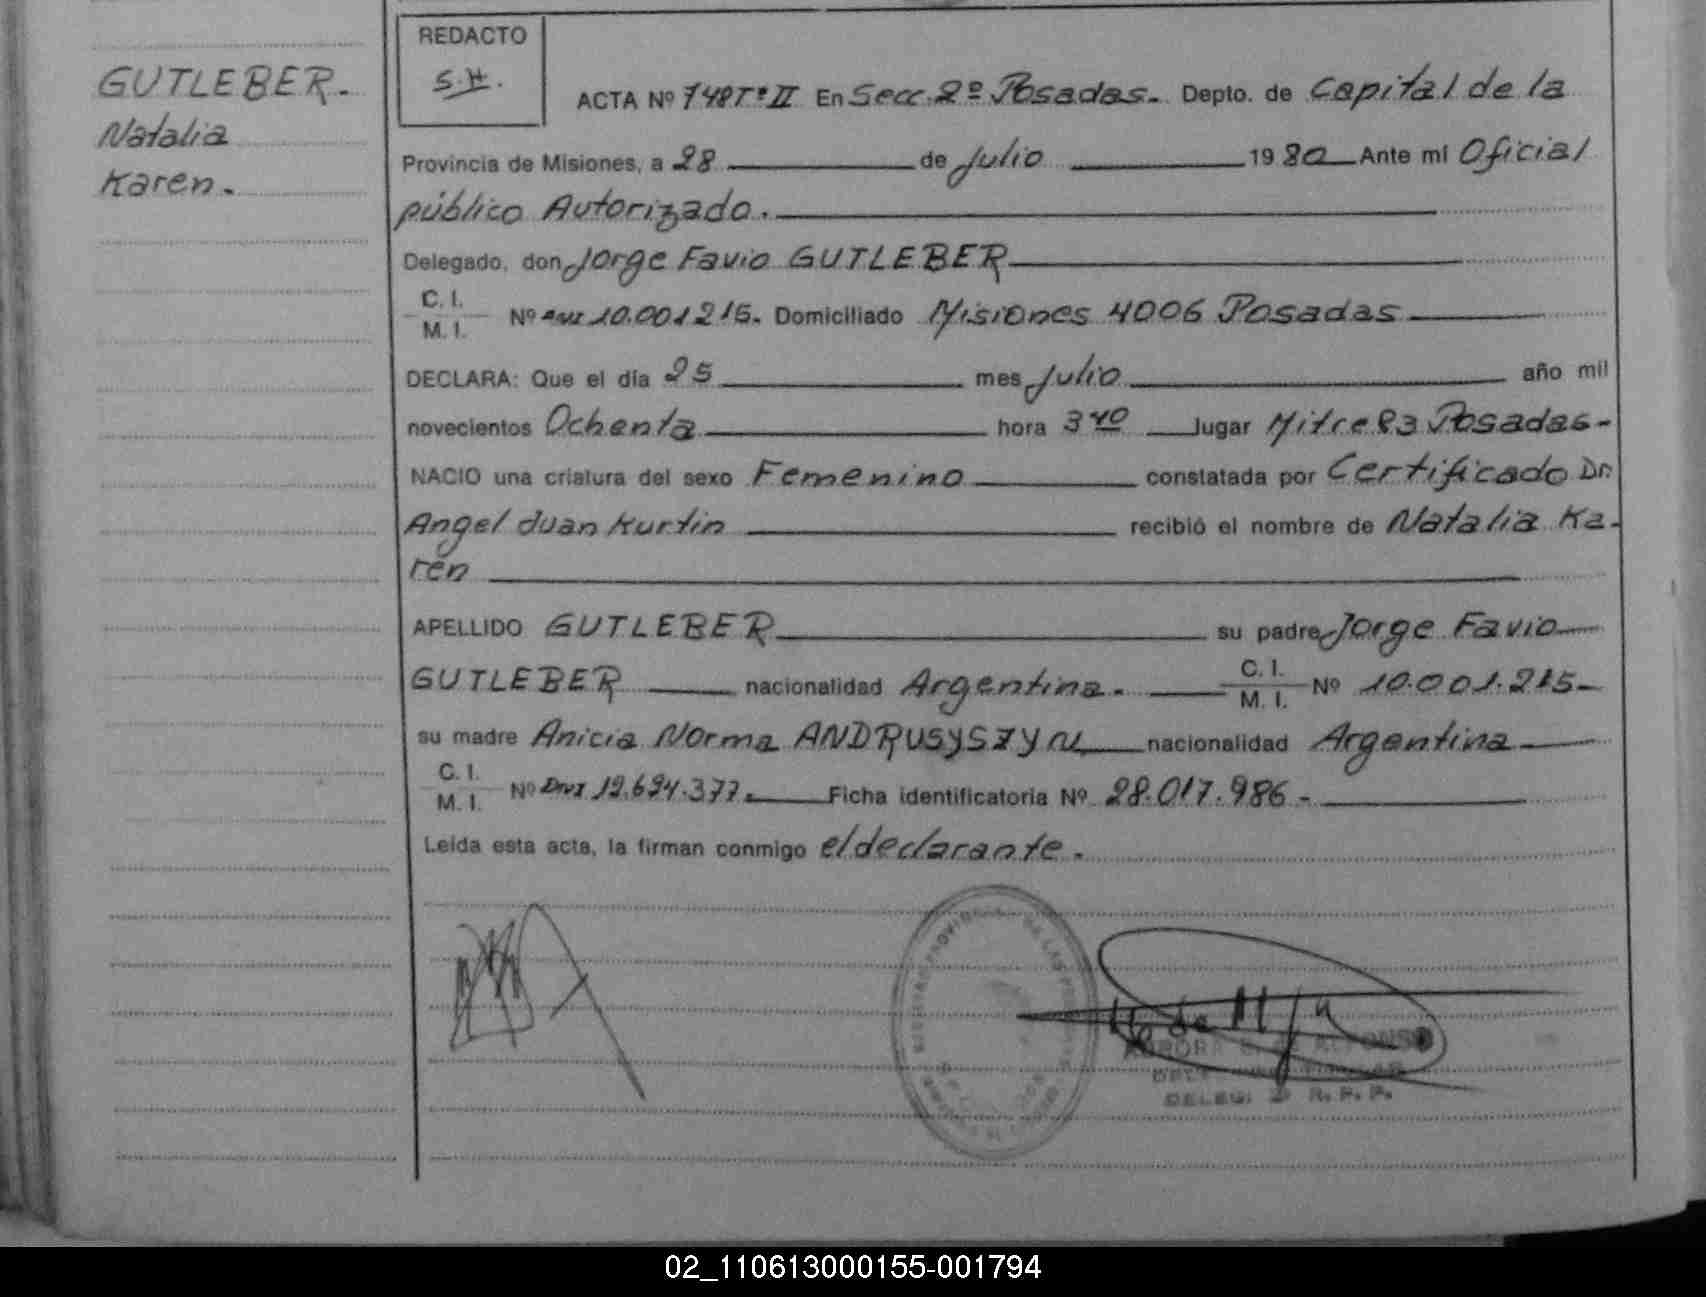 GUTLEBER.
Natalia
Karen.
REDACTO
S.H.
ACTA Nº 748Tº II En Secc. 2º Posadas. Depto. de Capital de la
Provincia de Misiones, a 28 de Julio 1980 Ante mi Oficial
público Autorizado.
Delegado, don Jorge Favio GUTLEBER
C. I.
M. I. Nº DNI 10.001215. Domiciliado Misiones 4006 Posadas
DECLARA: Que el día 25 mes Julio año mil
novecientos Ochenta hora 3 40 lugar Mitre 83 Posadas-
NACIO una criatura del sexo Femenino constatada por Certificado Dr.
Angel Juan Kurtin recibió el nombre de Natalia Ka-
ren
APELLIDO GUTLEBER su padre Jorge Favio
GUTLEBER nacionalidad Argentina. C. I.
M. I. Nº 10.001.215-
su madre Anicia Norma ANDRUSYSZYN nacionalidad Argentina
C. I.
M. I. Nº DNI 12.694.377. Ficha identificatoria Nº 28.017.986-
Leída esta acta, la firman conmigo el declarante.
ALFONSO
DELEG. 2 R. P. P.
02_110613000155-001794